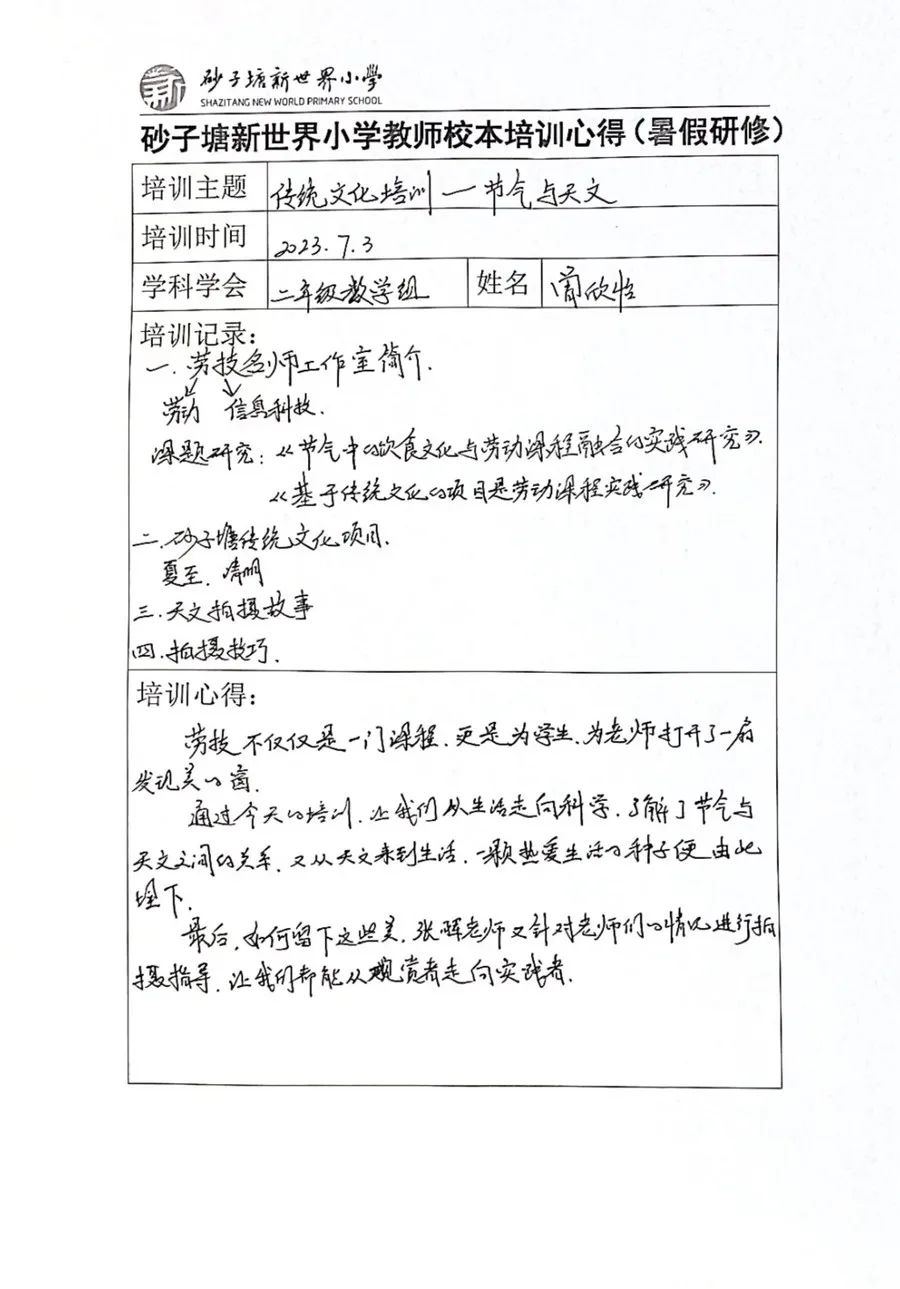 砂子塘新世界小學
SHAZITANG NEW WORLD PRIMARY SCHOOL
砂子塘新世界小学教师校本培训心得（暑假研修）
培训主题 传统文化培训—节气与天文
培训时间 2023.7.3
学科学会 二年级数学组 姓名 欣怡
培训记录：
一.劳技名师工作室简介.
劳动 信息科技.
课题研究：《节气中的饮食文化与劳动课程融合的实践研究》.
《基于传统文化的项目是劳动课程实践研究》.
二.砂子塘传统文化项目.
夏至.清明
三.天文拍摄故事
四.拍摄技巧.
培训心得：
劳技不仅仅是一门课程.更是为学生、为老师打开了一扇
发现美的窗.
通过今天的培训.让我们从生活走向科学.了解了节气与
天文之间的关系.又从天文来到生活.一颗热爱生活的种子便由此
埋下.
最后,如何留下这些美.张晖老师又针对老师们的情况进行拍
摄指导.让我们都能从观赏者走向实践者.